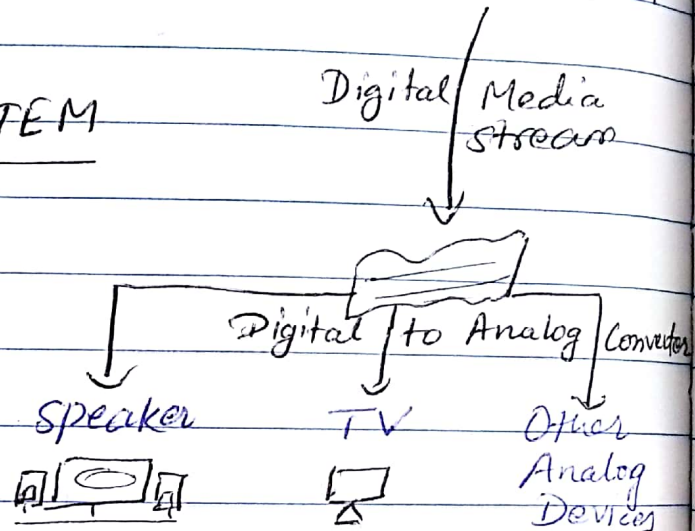 Digital Media
stream
TEM
Digital to Analog Convertor
Speaker
TV
Other
Analog
Devices